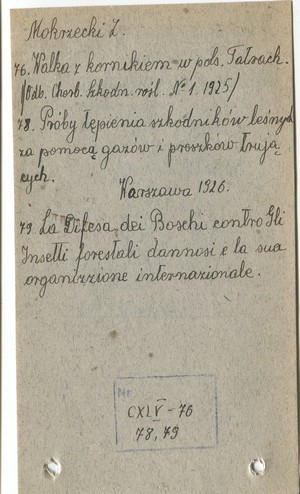 Mokrzecki Z.
76. Walka z kornikiem w pols. Tatrach.
/Odb. Chorb. Szkodn. rośl. No 1. 1925/
78. Próby tępienia szkodników leśnych
za pomocą gazów i proszków trują-
cych.
Warszawa 1926.
79 La Difesa dei Boschi contro Gli
Insetti forestali dannosi e la sua
organizzione internazionale.
Nr
CXLV - 76
78, 79